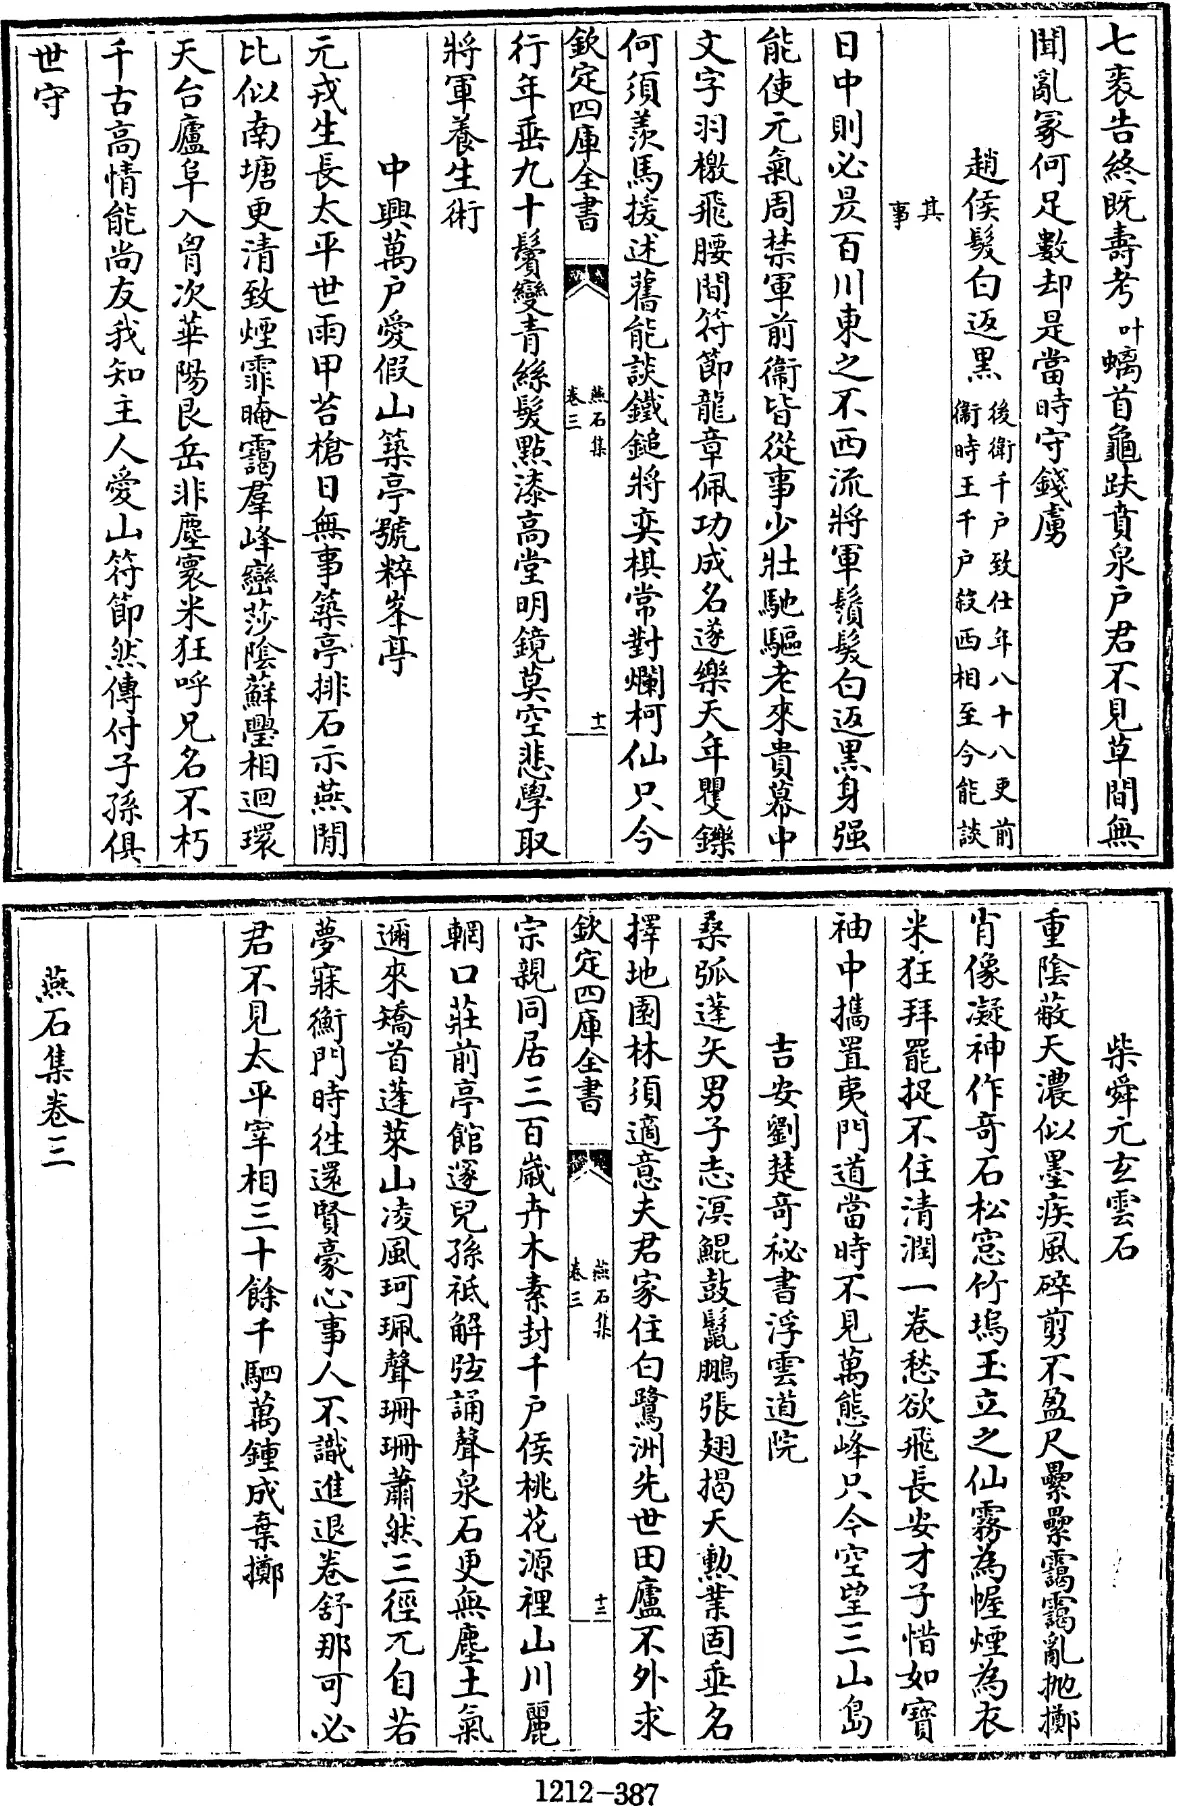 七袠告終既壽考叶螭首龜趺賁泉戶君不見草間無
聞亂冢何足數却是當時守錢虜
趙侯髮白返黑後衛千戶致仕年八十八更前
衞時王千戶殺西相至今能談
其
事
日中則必昃百川東之不西流將軍鬚髮白返黒身强
能使元氣周禁軍前衞皆從事少壯馳驅老來貴幕中
文字羽檄飛腰間符節龍章佩功成名遂樂天年矍鑠
何須羨馬援述舊能談鐵鎚將奕棋常對爛柯仙只今
欽定四庫全書
燕石集
卷三
十二
行年垂九十鬢變青絲髮點漆高堂明鏡莫空悲學取
將軍養生術
中興萬戶愛假山築亭號粹峯亭
元戎生長太平世雨甲苔槍日無事築亭排石示燕閒
比似南塘更清致煙霏晻靄羣峰巒莎陰蘚壁相迴環
天台廬阜入胷次華陽艮岳非塵寰米狂呼兄名不朽
千古高情能尚友我知主人愛山符節然傳付子孫俱
世守
柴舜元玄雲石
重陰蔽天濃似墨疾風碎剪不盈尺纍纍靄靄亂抛擲
肖像凝神作奇石松窓竹塢玉立之仙霧為幄煙為衣
米狂拜罷捉不住清潤一卷愁欲飛長安才子惜如寶
袖中攜置夷門道當時不見萬態峰只今空望三山島
吉安劉楚奇秘書浮雲道院
桑弧蓬矢男子志溟鯤鼓鬣鵬張翅揭天勲業固垂名
擇地園林須適意夫君家住白鷺洲先世田廬不外求
欽定四庫全書
燕石集
卷三
十三
宗親同居三百歲卉木素封千戶侯桃花源裡山川麗
輞口莊前亭館邃兒孫祗解弦誦聲泉石更無塵土氣
邇來矯首蓬萊山凌風珂珮聲珊珊蕭然三徑兀自若
夢寐衡門時徃還賢豪心事人不識進退卷舒那可必
君不見太平宰相三十餘千駟萬鍾成棄擲
燕石集卷三
1212-387